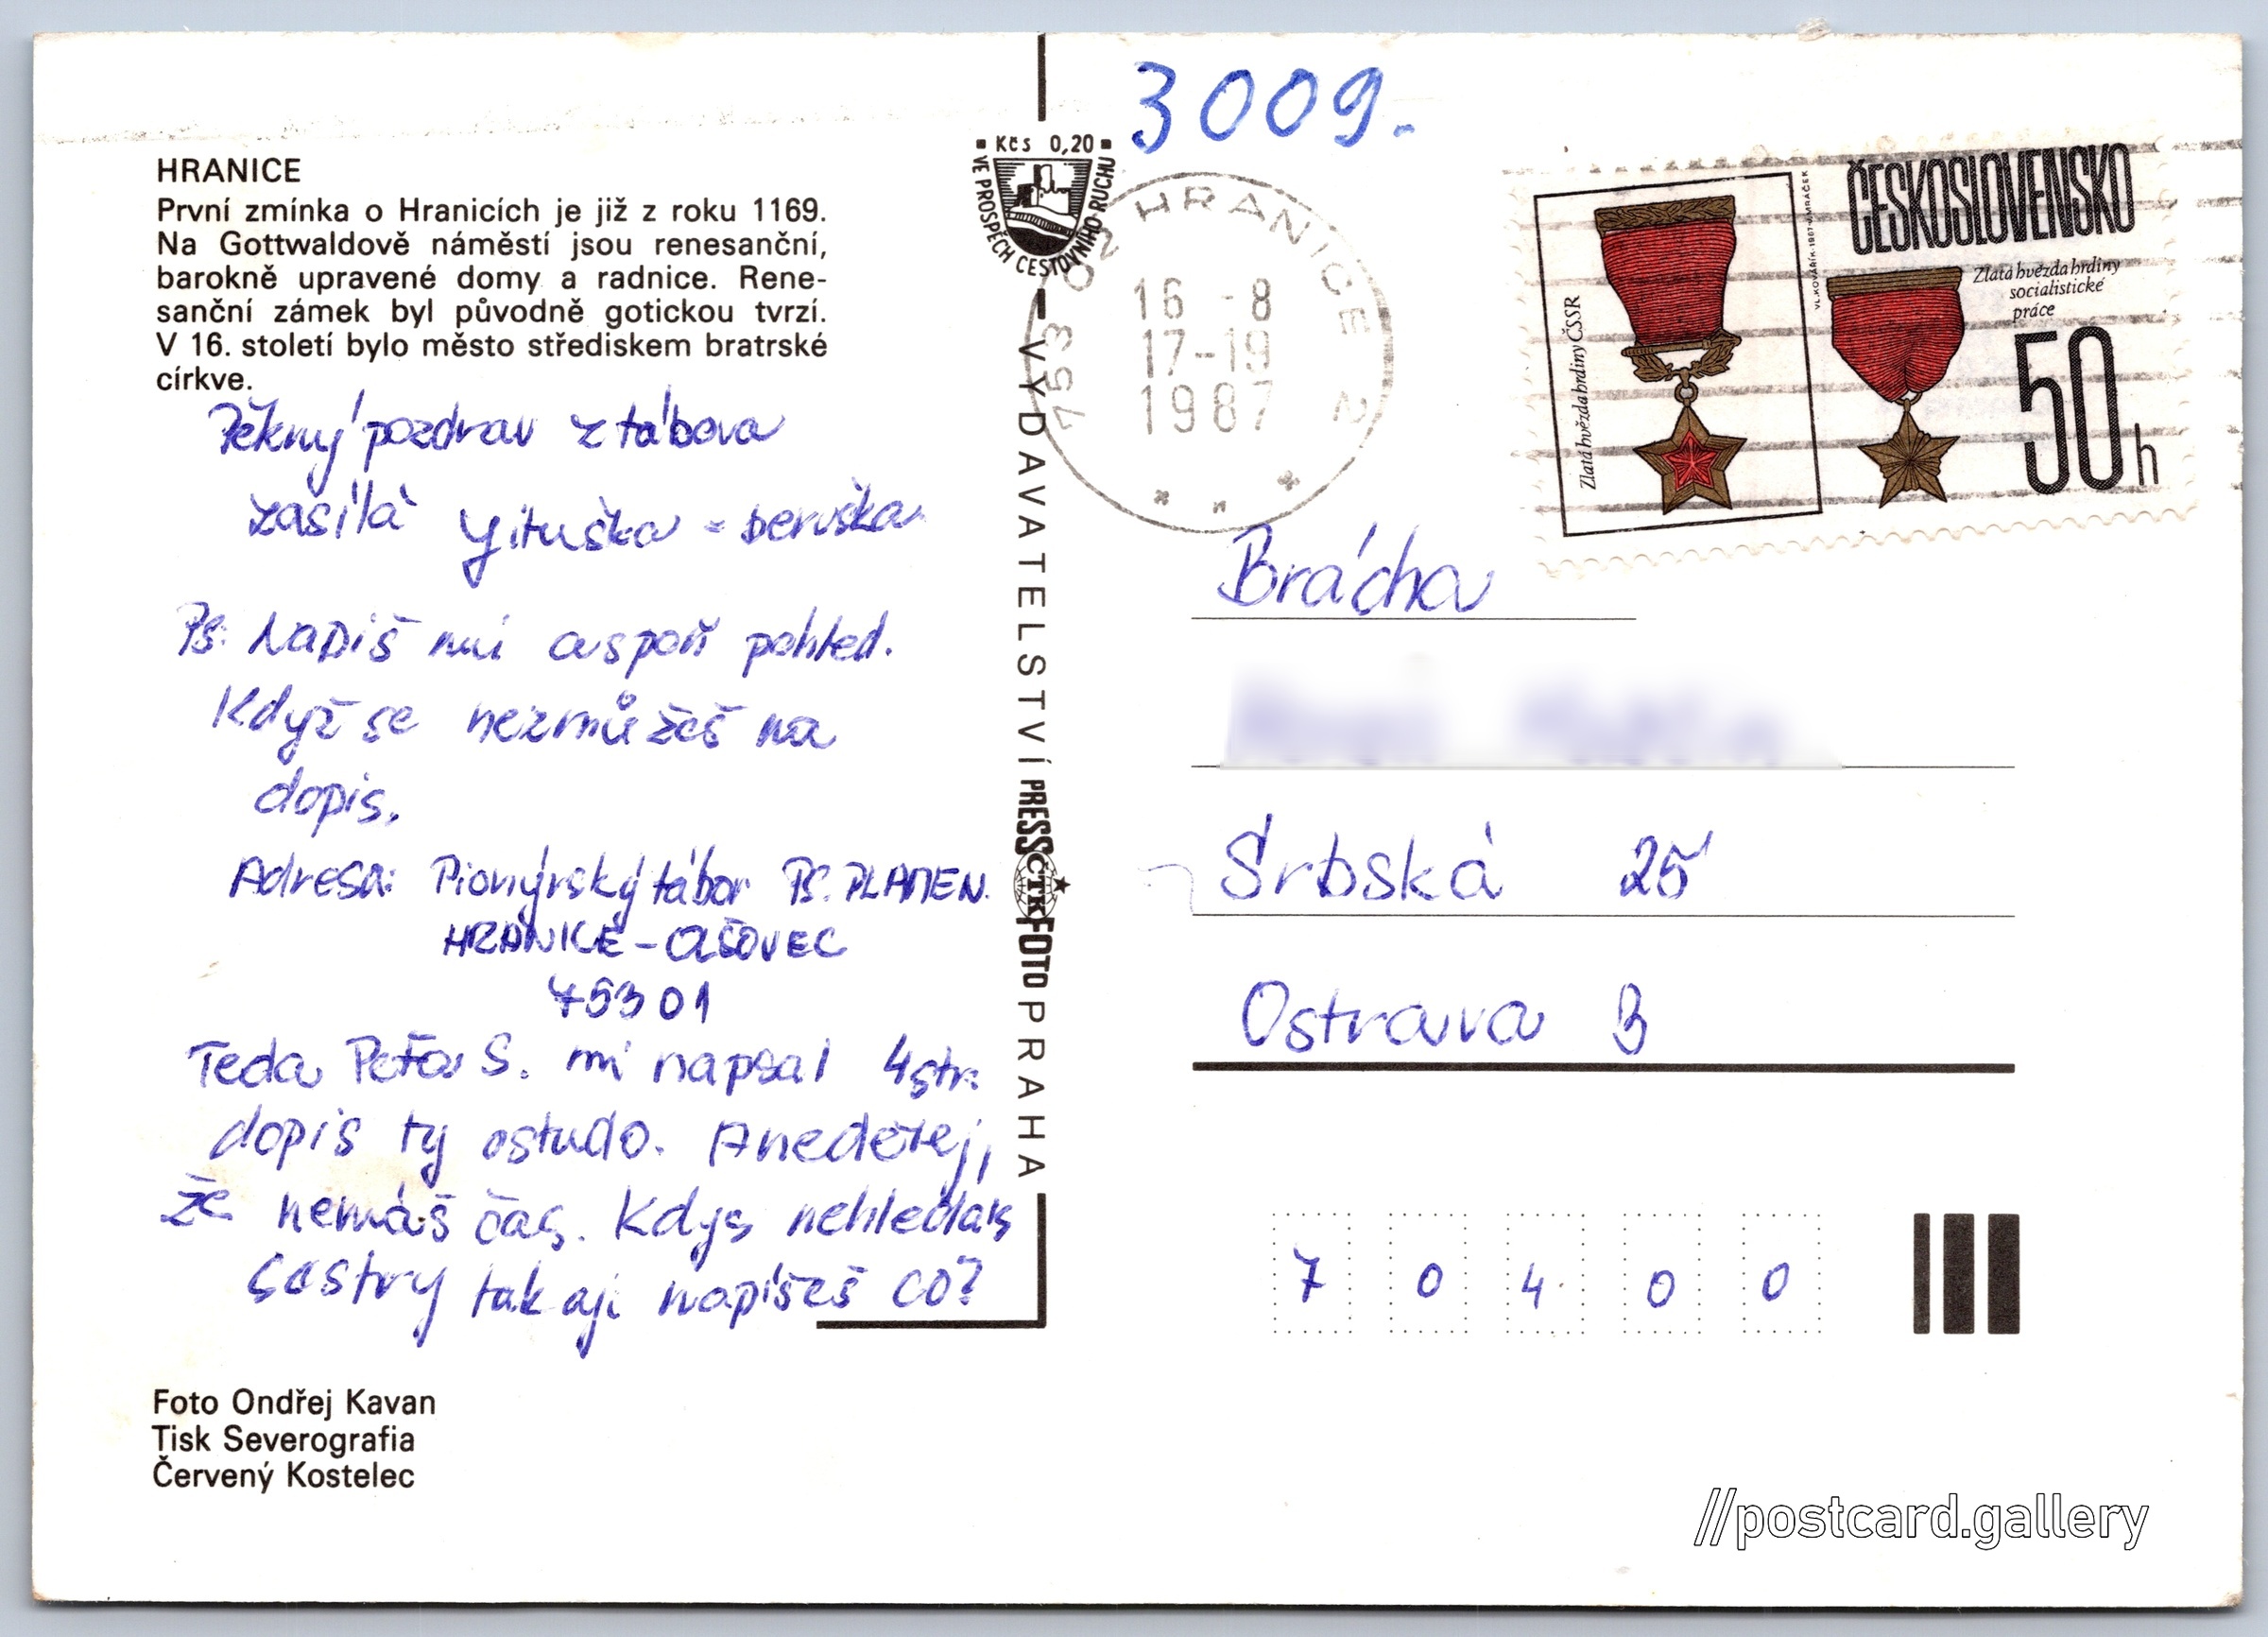 HRANICE
První zmínka o Hranicích je již z roku 1169.
Na Gottwaldově náměstí jsou renesanční,
barokně upravené domy a radnice. Rene-
sanční zámek byl původně gotickou tvrzí.
V 16. století bylo město střediskem bratrské
církve.
Pěkný pozdrav z tábora
zasílá Yituška - beruška
Ps: Napiš mi aspoň pohled.
Když se nezmůžeš na
dopis.
Adresa: Pionýrský tábor PS. PLAMEN.
HRANICE - OLŠOVEC
753 01
Teda Peťa S. mi napsal 4str.
dopis ty ostudo. A neděkej,
že nemáš čas. Kdys nehledáš
sestry tak aji napíšeš co?
Foto Ondřej Kavan
Tisk Severografia
Červený Kostelec
Kčs 0,20
VE PROSPĚCH CESTOVNÍHO RUCHU
VYDAVATELSTVÍ PRESSFOTO PRAHA
ČTK
3009.
753 01 HRANICE 2
16 -8
17-19
1987
ČESKOSLOVENSKO
Zlatá hvězda hrdiny ČSSR
VL.KOVÁŘÍK·1987·M·MRÁČEK
Zlatá hvězda hrdiny
socialistické
práce
50 h
Brácha
Srbská 25
Ostrava 3
7 0 4 0 0
//postcard.gallery